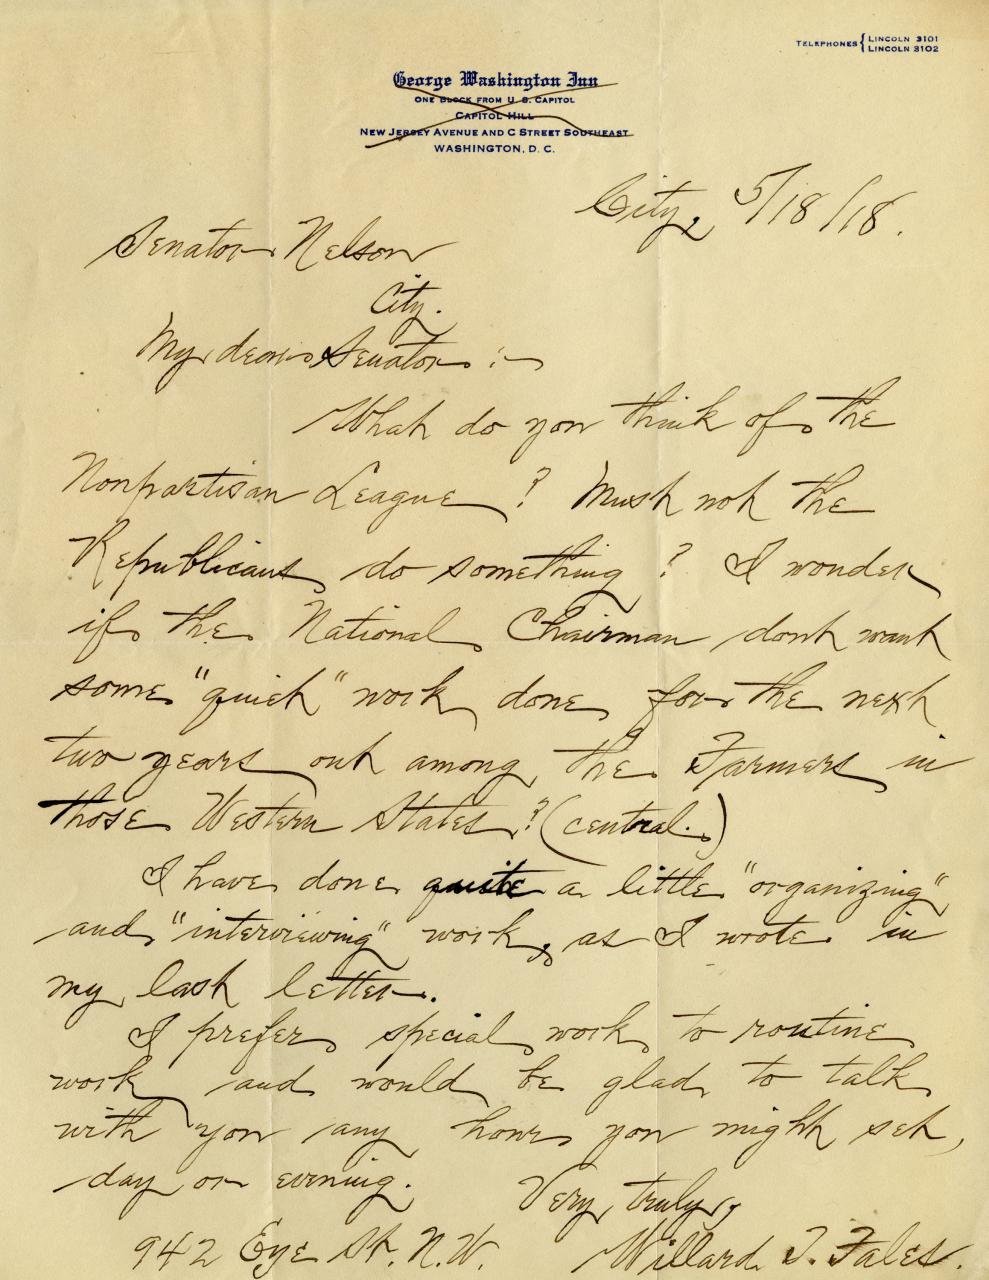 TELEPHONES { LINCOLN 3101
LINCOLN 3102
George Washington Inn
ONE BLOCK FROM U. S. CAPITOL
CAPITOL HILL
NEW JERSEY AVENUE AND C STREET SOUTHEAST
WASHINGTON, D. C.
City, 5/18/18.
Senator Nelson
City.
My dear Senator :-
What do you think of the
Nonpartisan League? Must not the
Republicans do something? I wonder
if the National Chairman dont want
some "quick" work done for the next
two years out among the Farmers in
those Western States? (central.)
I have done quite a little "organizing"
and "interviewing" work, as I wrote in
my last letter.
I prefer special work to routine
work and would be glad to talk
with you any hour you might set,
day or evening.
Very truly,
942 Eye St. N.W. Willard T. Fales.